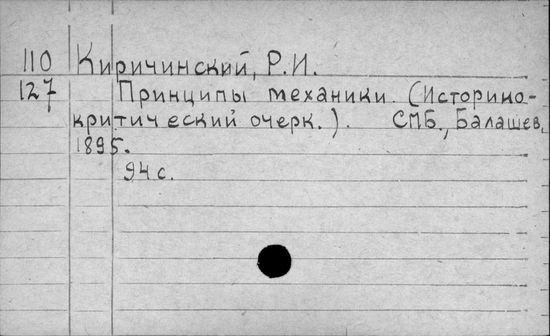 110 Киричинский, Р.И.
127 Принципы механики. (Историко-
критический очерк.). СПБ., Балашев,
1895.
94 с.